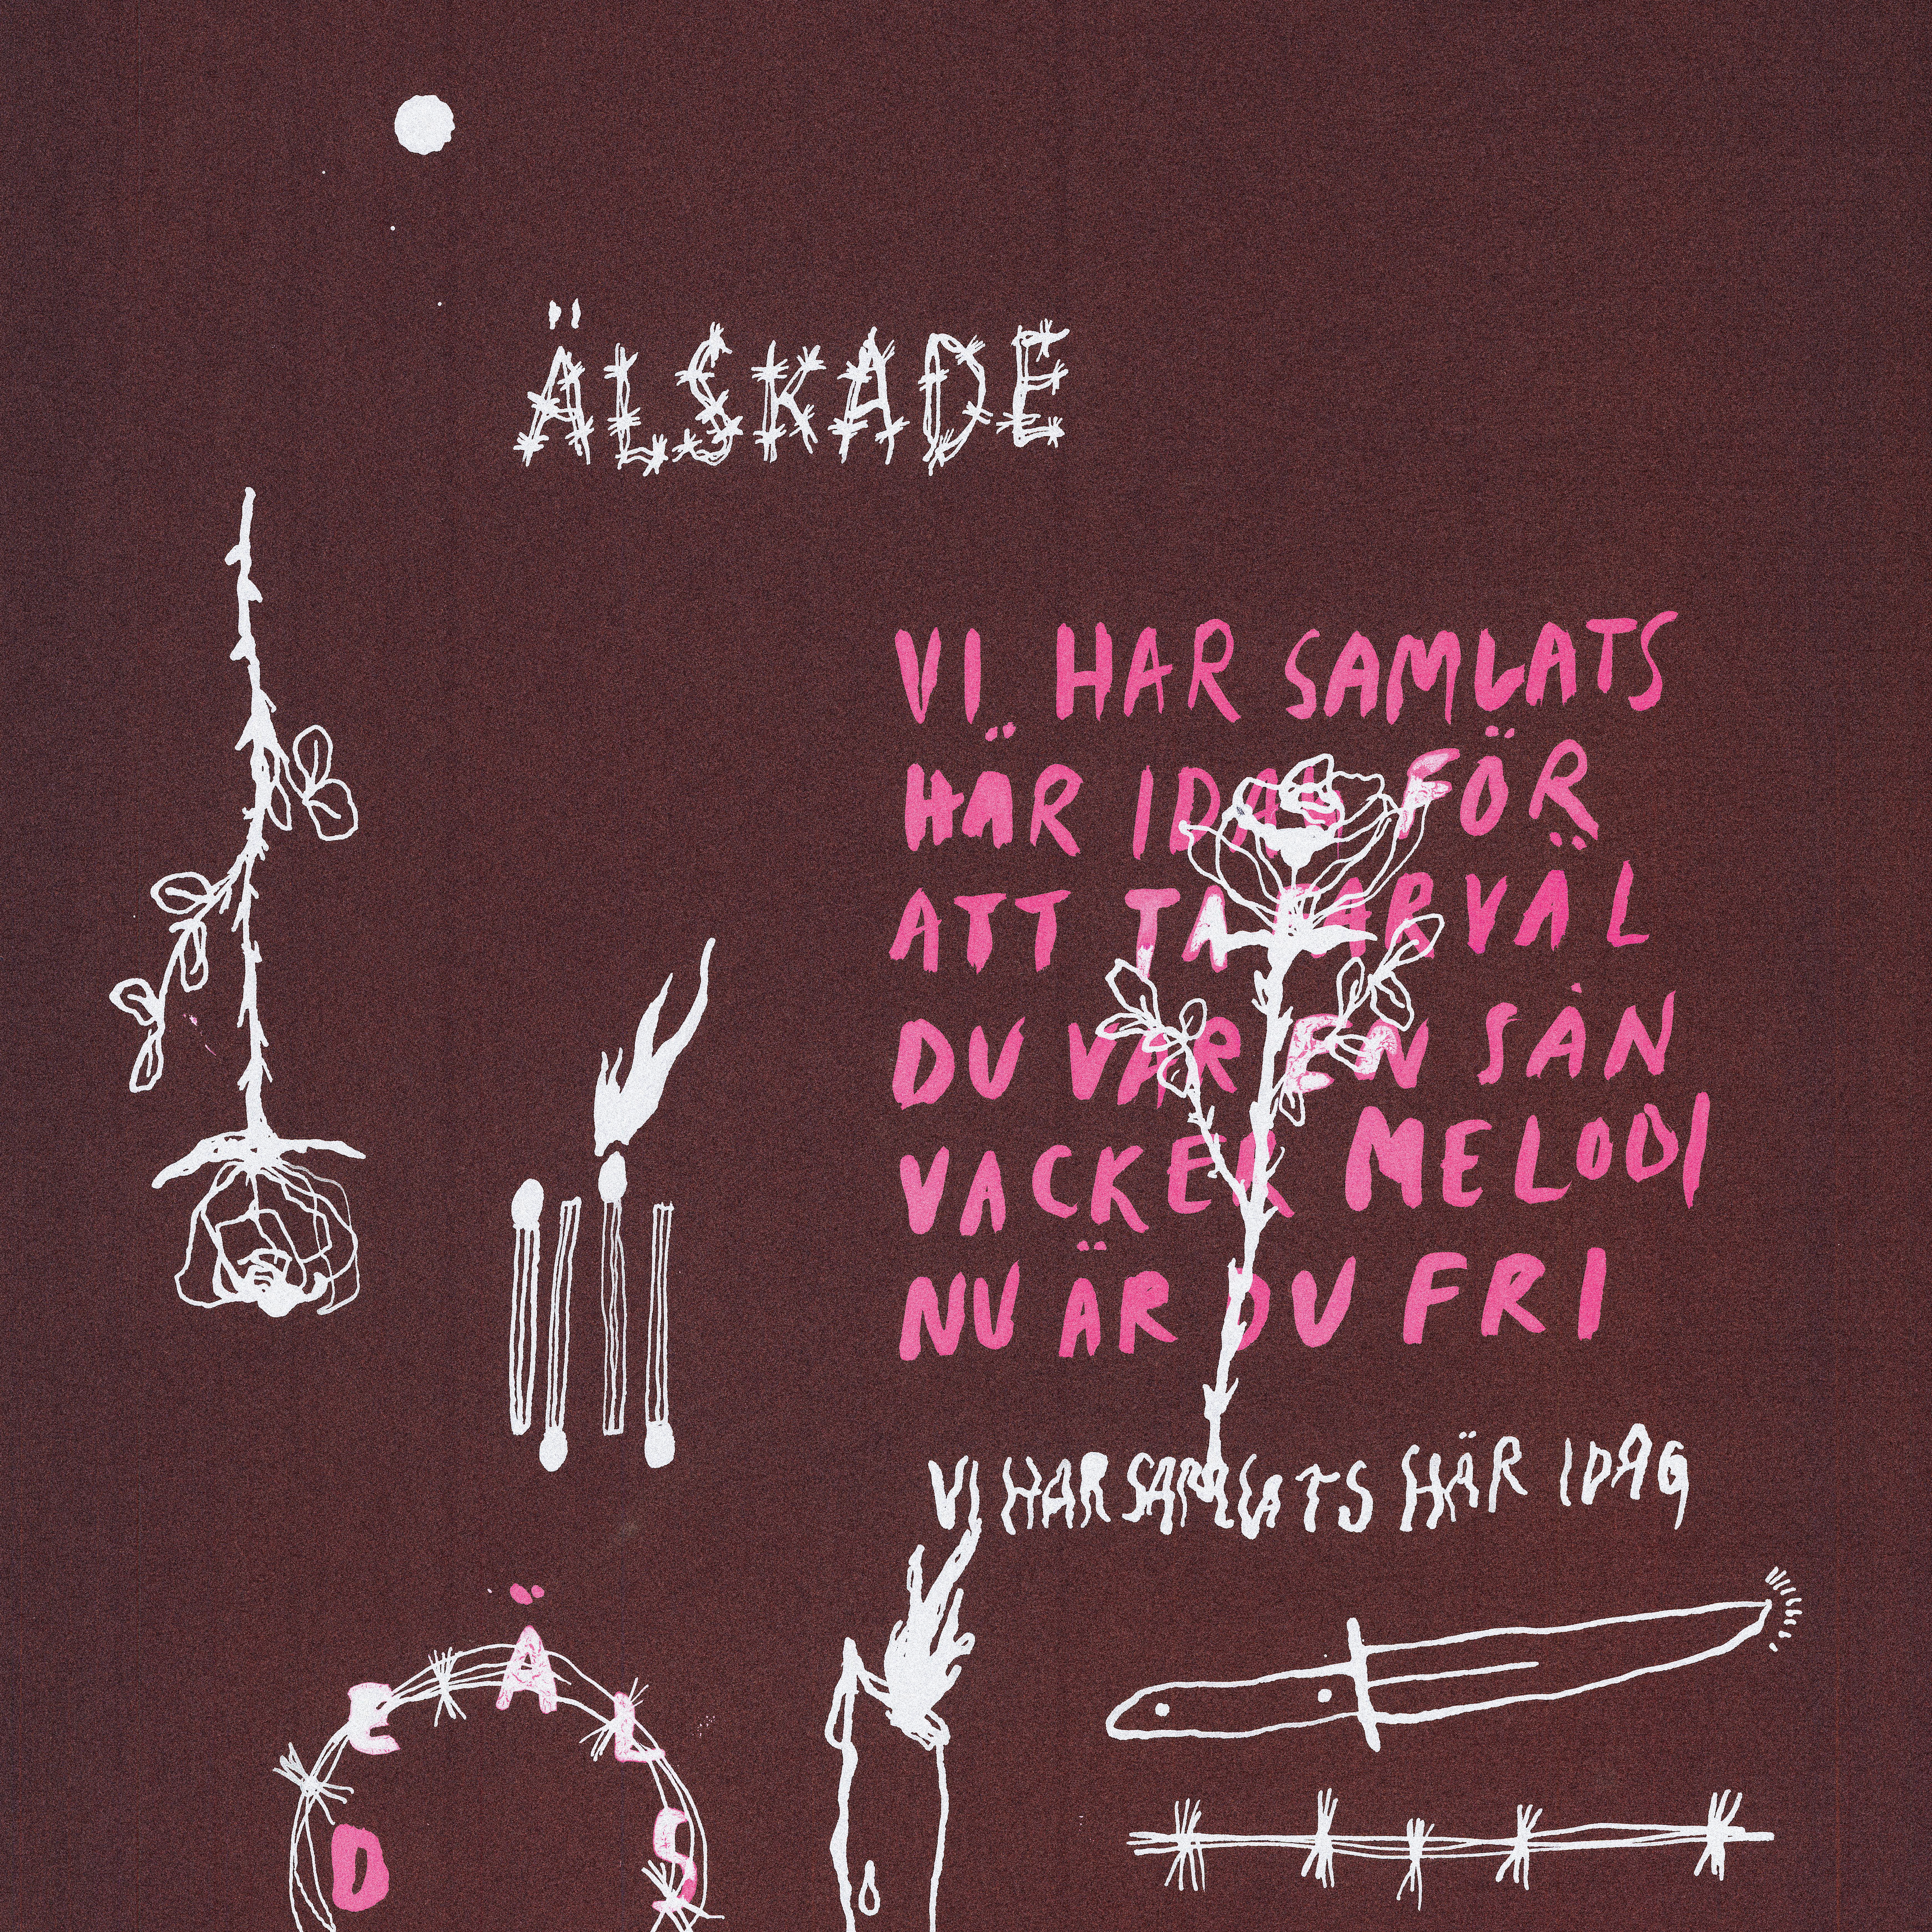 ÄLSKADE
VI HAR SAMLATS
HÄR IDAG FÖR
ATT TA FARVÄL
DU VAR EN SÅN
VACKER MELODI
NU ÄR DU FRI
VI HAR SAMLATS HÄR IDAG
ÄLS DE